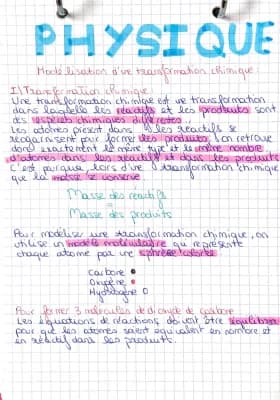 PHYSIQUE
Modélisation d'une transformation chimique
I) Transformation chimique
Une transformation chimique est une transformation
dans laquelle les réactifs et les produits sont
des espèces chimiques différentes.
Les atomes présent dans les réactifs se
réorganisent pour former des produits, on retrouve
donc exactement le même type et le même nombre
d'atomes dans les réactifs et dans les produits
C'est pourquoi lors d'une transformation chimique
que la masse se conserve.
Masse des réactifs
=
Masse des produits
Pour modéliser une transformation chimique, on
utilise un modèle moléculaire qui représente
chaque atome par une sphère colorée
Carbone
Oxygène
Hydrogène
Pour former 3 molécules de dioxyde de carbone
Les équations de réactions doivent être équilibrées
pour que les atomes soient équivalent en nombre et
en réactif dans les produits.